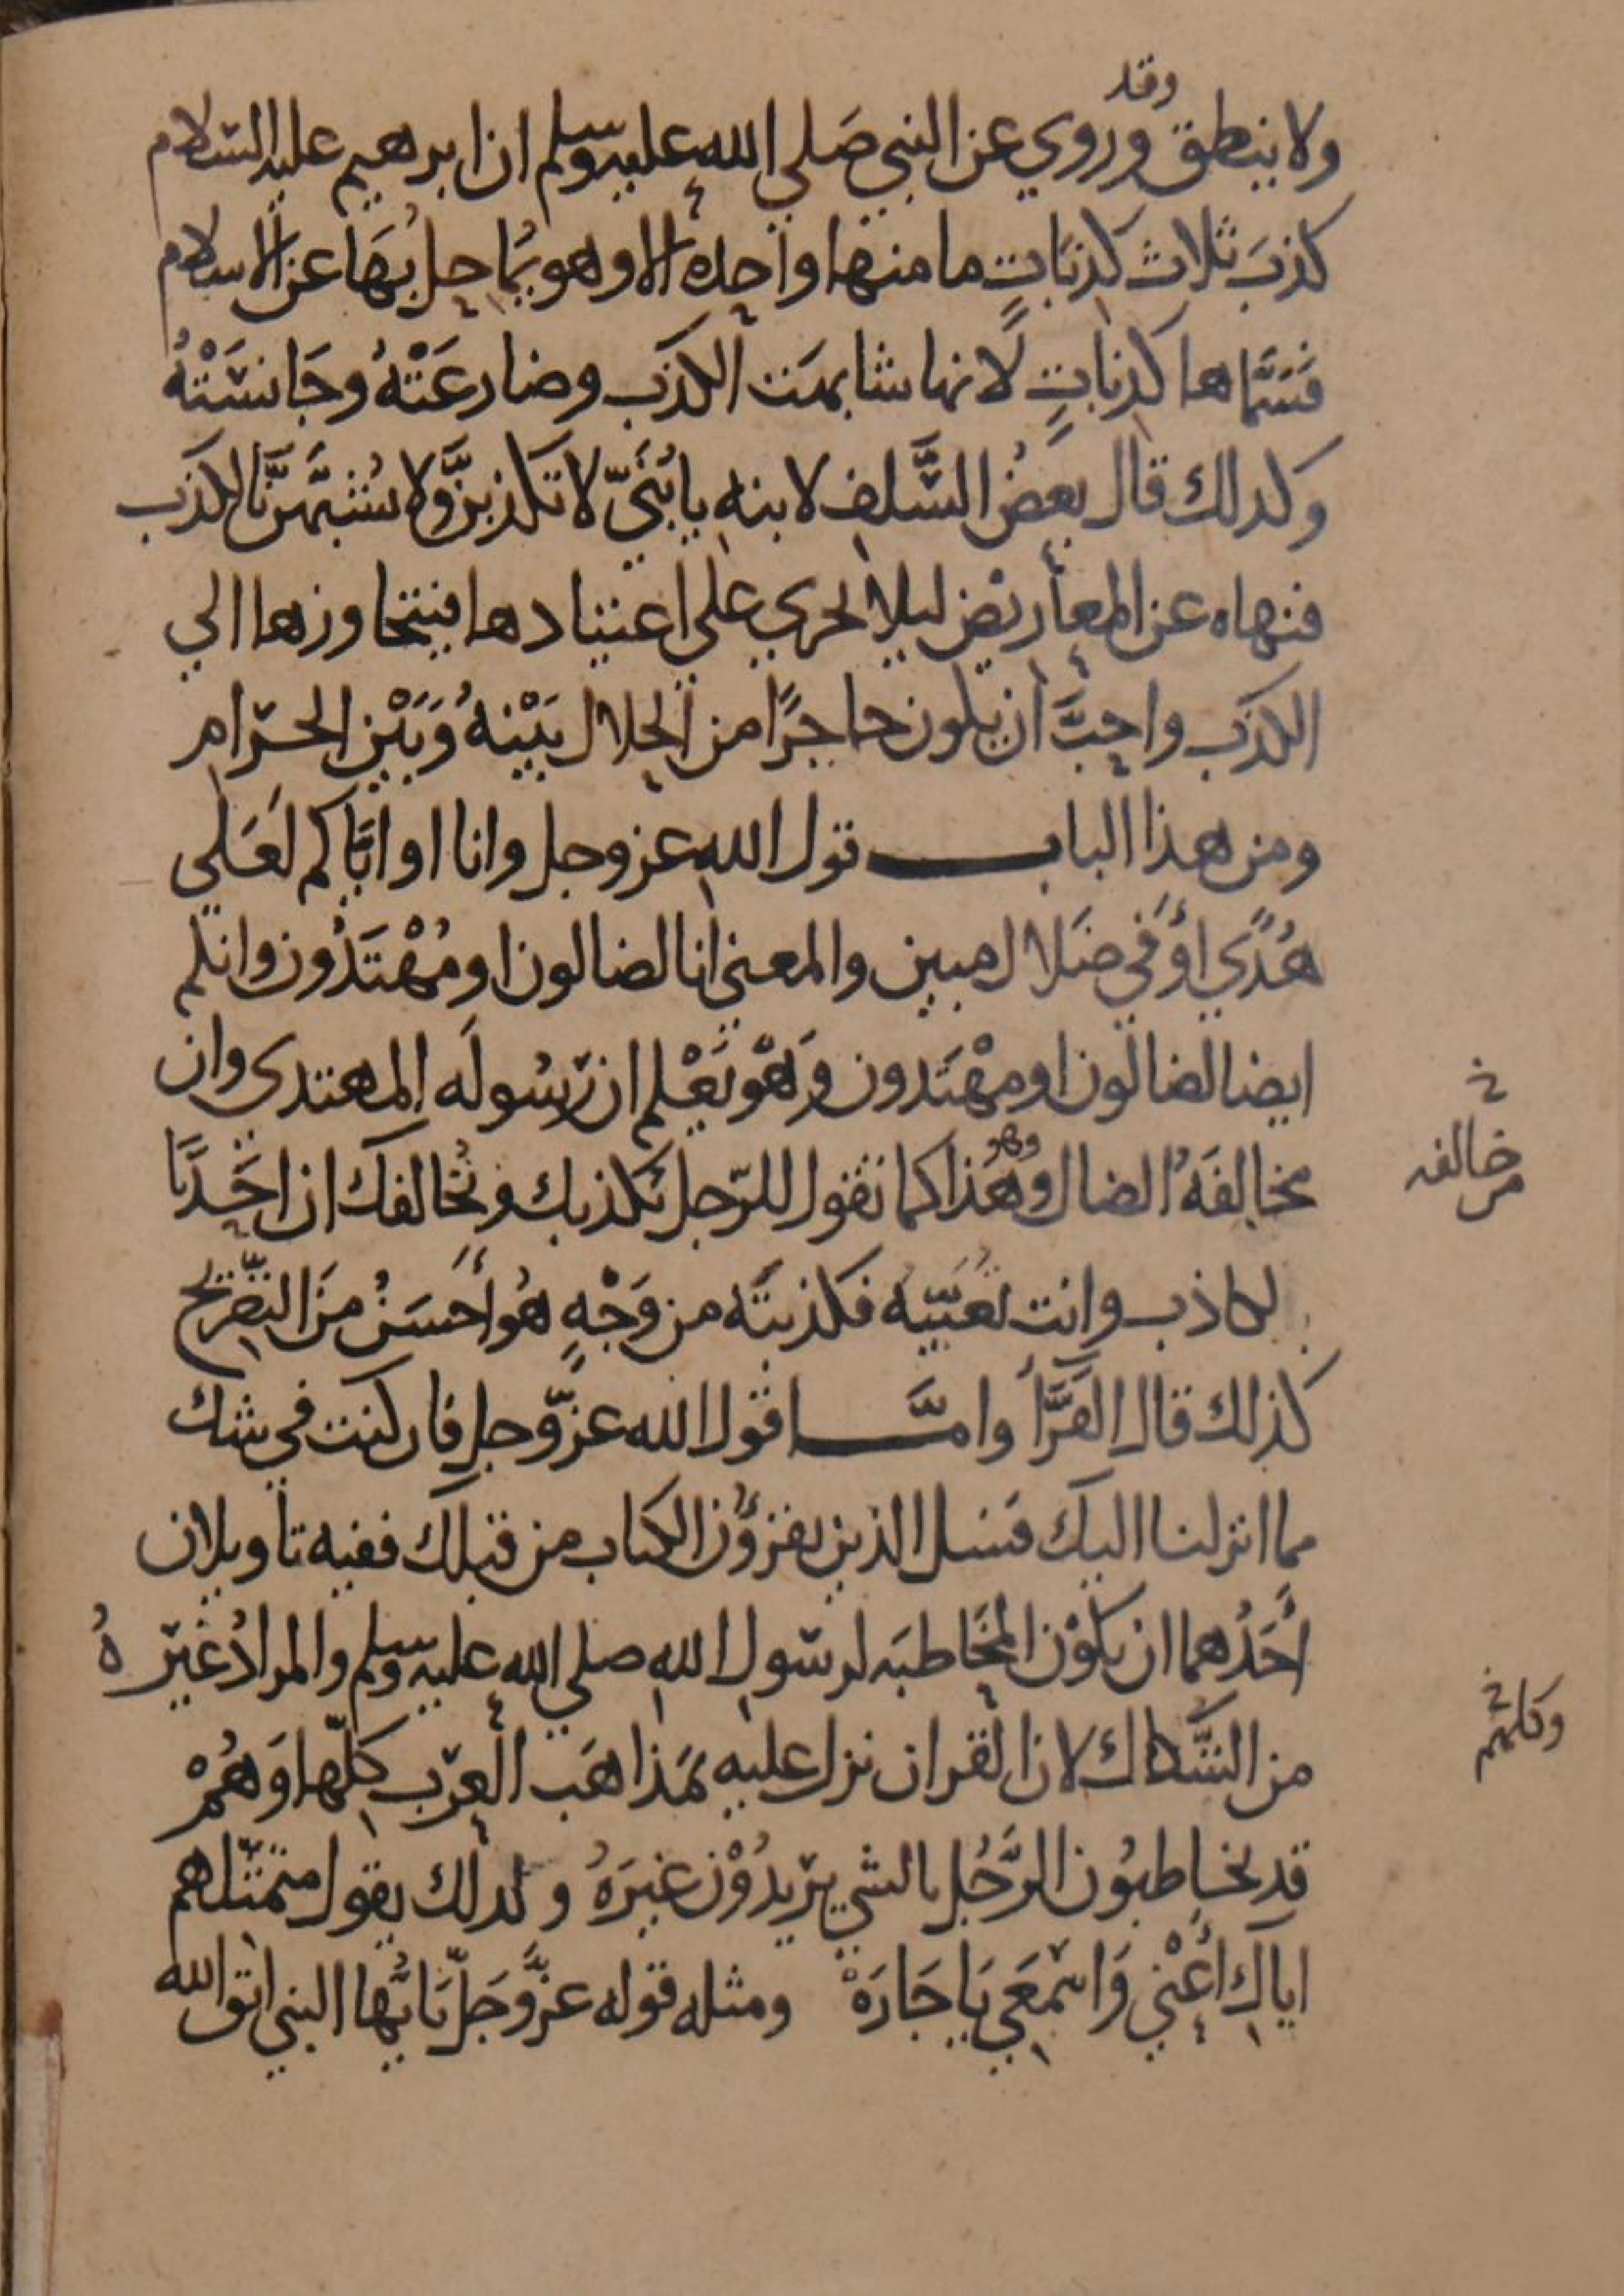 وقد
ولا ينطق وروي عن النبي صَلي الله عليه وسلم ان ابرهيم عليه السلام
كذبَ ثلاث كذبَاتٍ ما منها واحده الا وهو يُماحِل بُهَا عن الاسلام
فسَمَّاها كذباتٍ لانها شابهَت الكذبَ وضارعَتْهُ وجَانسَتْهُ
وكدلك قال بعضُ السَّلفِ لابنه يا بُنَيّ لا تكذبنَّ ولا تشبهَّنَّ بالكذب
فنهاه عن المعاريض ليلا يجري علي اعتيادها فيتجاوزها الي
الكذب واحبَّ ان يكون حاجزًا من الحلال بَيْنهُ وَبَيْن الحرام
ومن هذا الباب قول الله عز وجل وانا او ايَّاكم لعَلي
هُدًي اوْ في ضَلال مبين والمعني انا لضالون او مُهْتَدُون وانكم
ايضا لضالون او مهْتَدون وَهْو يَعْلم ان رَسُولَه المهتدي وان
مخالِفَهُ الضال وهَذا كما تقول للرّجل يكذبك ويُخالفك ان احَدَنَا
وهو
خالفه
لكاذب وانت تعنيه فكذبتَه من وَجْهٍ هُو أحسَنُ مِنَ التصْريح
كذلك قال الفَرَّأ وامَّا قول الله عزّ وجل فان كنت في شك
مما انزلنا اليك فسَل الذين يقرؤن الكتاب من قبلك ففيه تاويلان
أحَدُهما ان يكوْن المخَاطبَه لرسول اللهِ صلي الله عليه وسلم والمرادُ غيْره
من الشَّكاك لان القران نزل عليه بمذاهَب العرَب كلّها وَهُمْ
وكلهم
قد يخاطبُون الرَّجُل بالشي يريدُوْن غيرَهُ ولدلك يقول متمثّلهم
اياكِ أعْني وَاسْمعَي يَا جَارَهْ ومثله قوله عزَّ وجَلّ يَايُّها النبي اتق الله